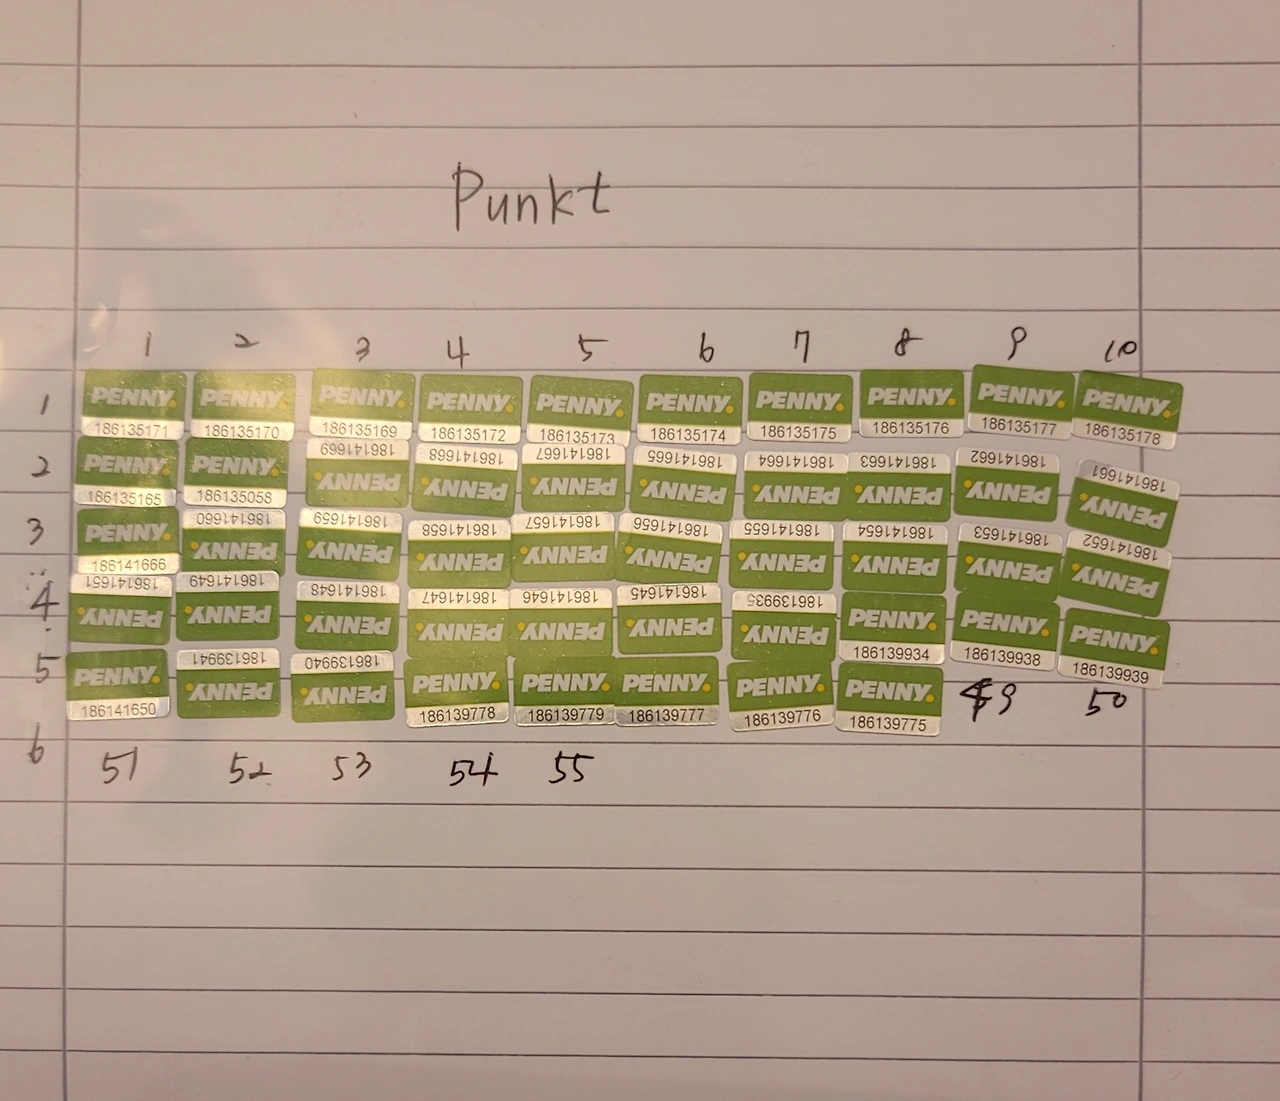 Punkt
1 2 3 4 5 6 7 8 9 10
1 PENNY. PENNY. PENNY. PENNY. PENNY. PENNY. PENNY. PENNY. PENNY. PENNY.
186135171 186135170 186135169 186135172 186135173 186135174 186135175 186135176 186135177 186135178
2 PENNY. PENNY. PENNY. PENNY. PENNY. PENNY. PENNY. PENNY. PENNY. PENNY.
186135165 186135058 186141669 186141668 186141667 186141665 186141664 186141663 186141662 186141661
3 PENNY. PENNY. PENNY. PENNY. PENNY. PENNY. PENNY. PENNY. PENNY. PENNY.
186141666 186141660 186141659 186141658 186141657 186141656 186141655 186141654 186141653 186141652
4 PENNY. PENNY. PENNY. PENNY. PENNY. PENNY. PENNY. PENNY. PENNY. PENNY.
186141651 186141649 186141648 186141647 186141646 186141645 186139935 186139934 186139938 186139939
5 PENNY. PENNY. PENNY. PENNY. PENNY. PENNY. PENNY. PENNY. 49 50
186141650 186139941 186139940 186139778 186139779 186139777 186139776 186139775
6 51 52 53 54 55